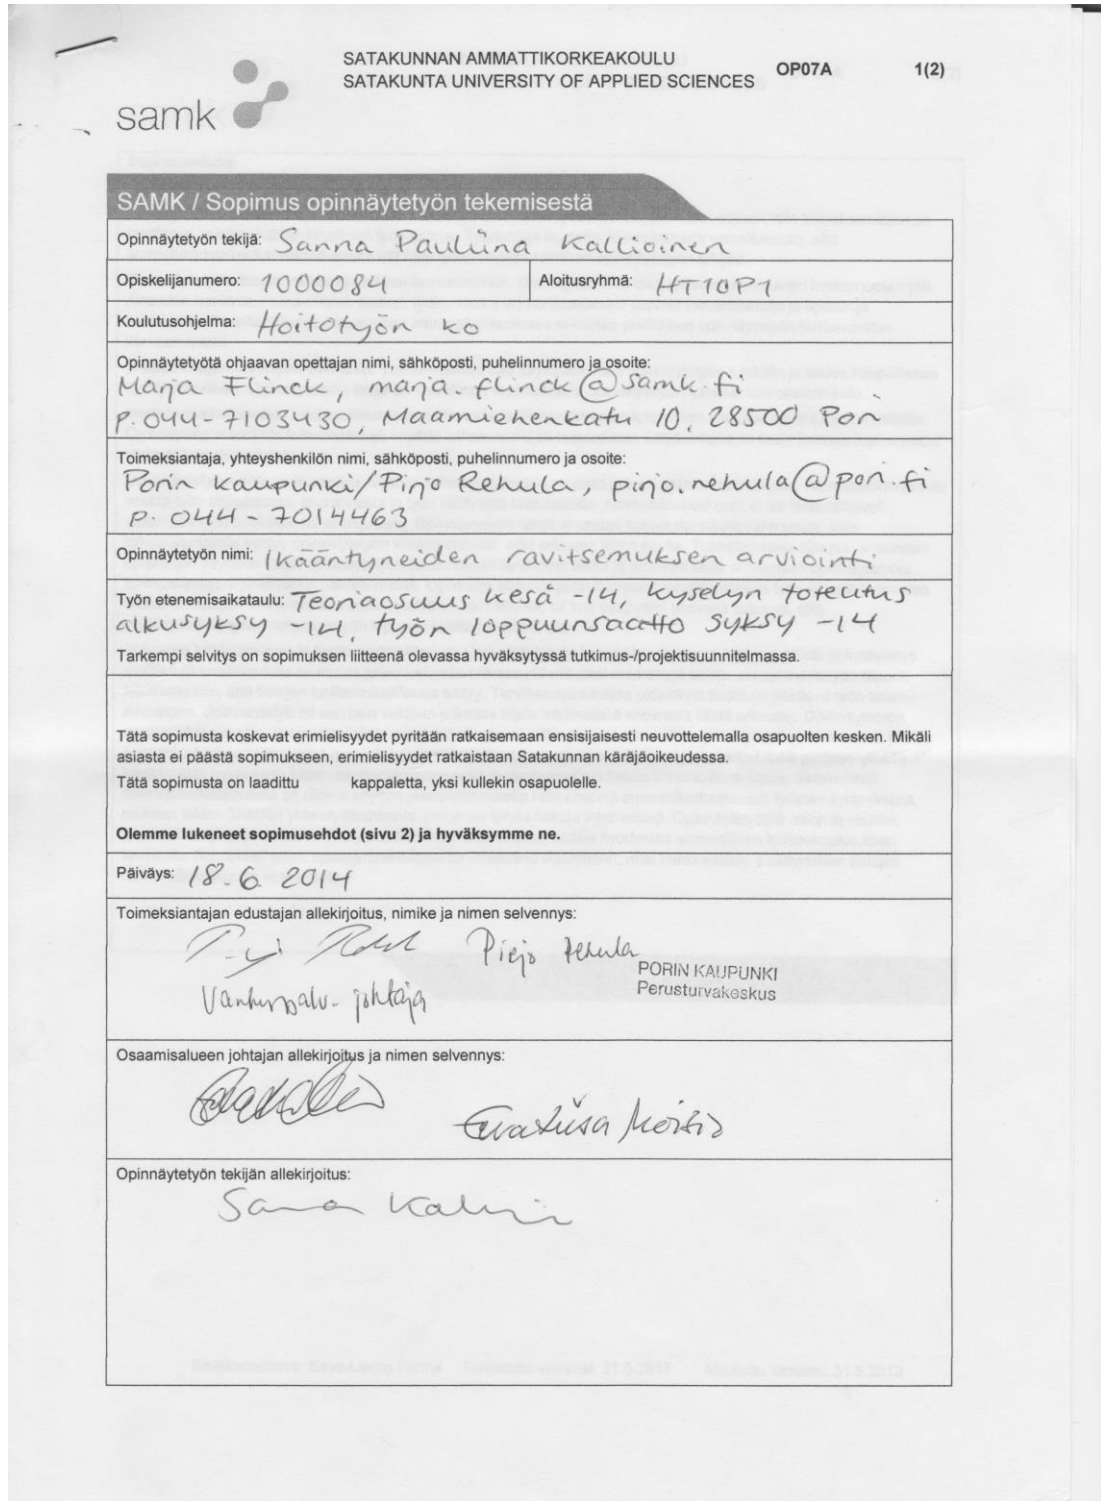 SATAKUNNAN AMMATTIKORKEAKOULU
SATAKUNTA UNIVERSITY OF APPLIED SCIENCES
OP07A
1(2)
samk
SAMK / Sopimus opinnäytetyön tekemisestä
Opinnäytetyön tekijä: Sanna Pauliina Kallioinen
Opiskelijanumero: 1000084
Aloitusryhmä: HT10P1
Koulutusohjelma: Hoitotyön ko
Opinnäytetyötä ohjaavan opettajan nimi, sähköposti, puhelinnumero ja osoite:
Marja Flinck, marja.flinck@samk.fi
p. 044-7103430, Maamiehenkatu 10, 28500 Pori
Toimeksiantaja, yhteyshenkilön nimi, sähköposti, puhelinnumero ja osoite:
Porin kaupunki/Pirjo Rehula, pirjo.rehula@pori.fi
p. 044-7014463
Opinnäytetyön nimi: Ikääntyneiden ravitsemuksen arviointi
Työn etenemisaikataulu: Teoriaosuus kesä -14, kyselyn toteutus
alkusyksy -14, työn loppuunsaatto syksy -14
Tarkempi selvitys on sopimuksen liitteenä olevassa hyväksytyssä tutkimus-/projektisuunnitelmassa.
Tätä sopimusta koskevat erimielisyydet pyritään ratkaisemaan ensisijaisesti neuvottelemalla osapuolten kesken. Mikäli
asiasta ei päästä sopimukseen, erimielisyydet ratkaistaan Satakunnan käräjäoikeudessa.
Tätä sopimusta on laadittu kappaletta, yksi kullekin osapuolelle.
Olemme lukeneet sopimusehdot (sivu 2) ja hyväksymme ne.
Päiväys: 18.6. 2014
Toimeksiantajan edustajan allekirjoitus, nimike ja nimen selvennys:
Pirjo Rehula
PORIN KAUPUNKI
Perusturvakeskus
Vanhuspalv. johtaja
Osaamisalueen johtajan allekirjoitus ja nimen selvennys:
Eevaliisa Moisio
Opinnäytetyön tekijän allekirjoitus: